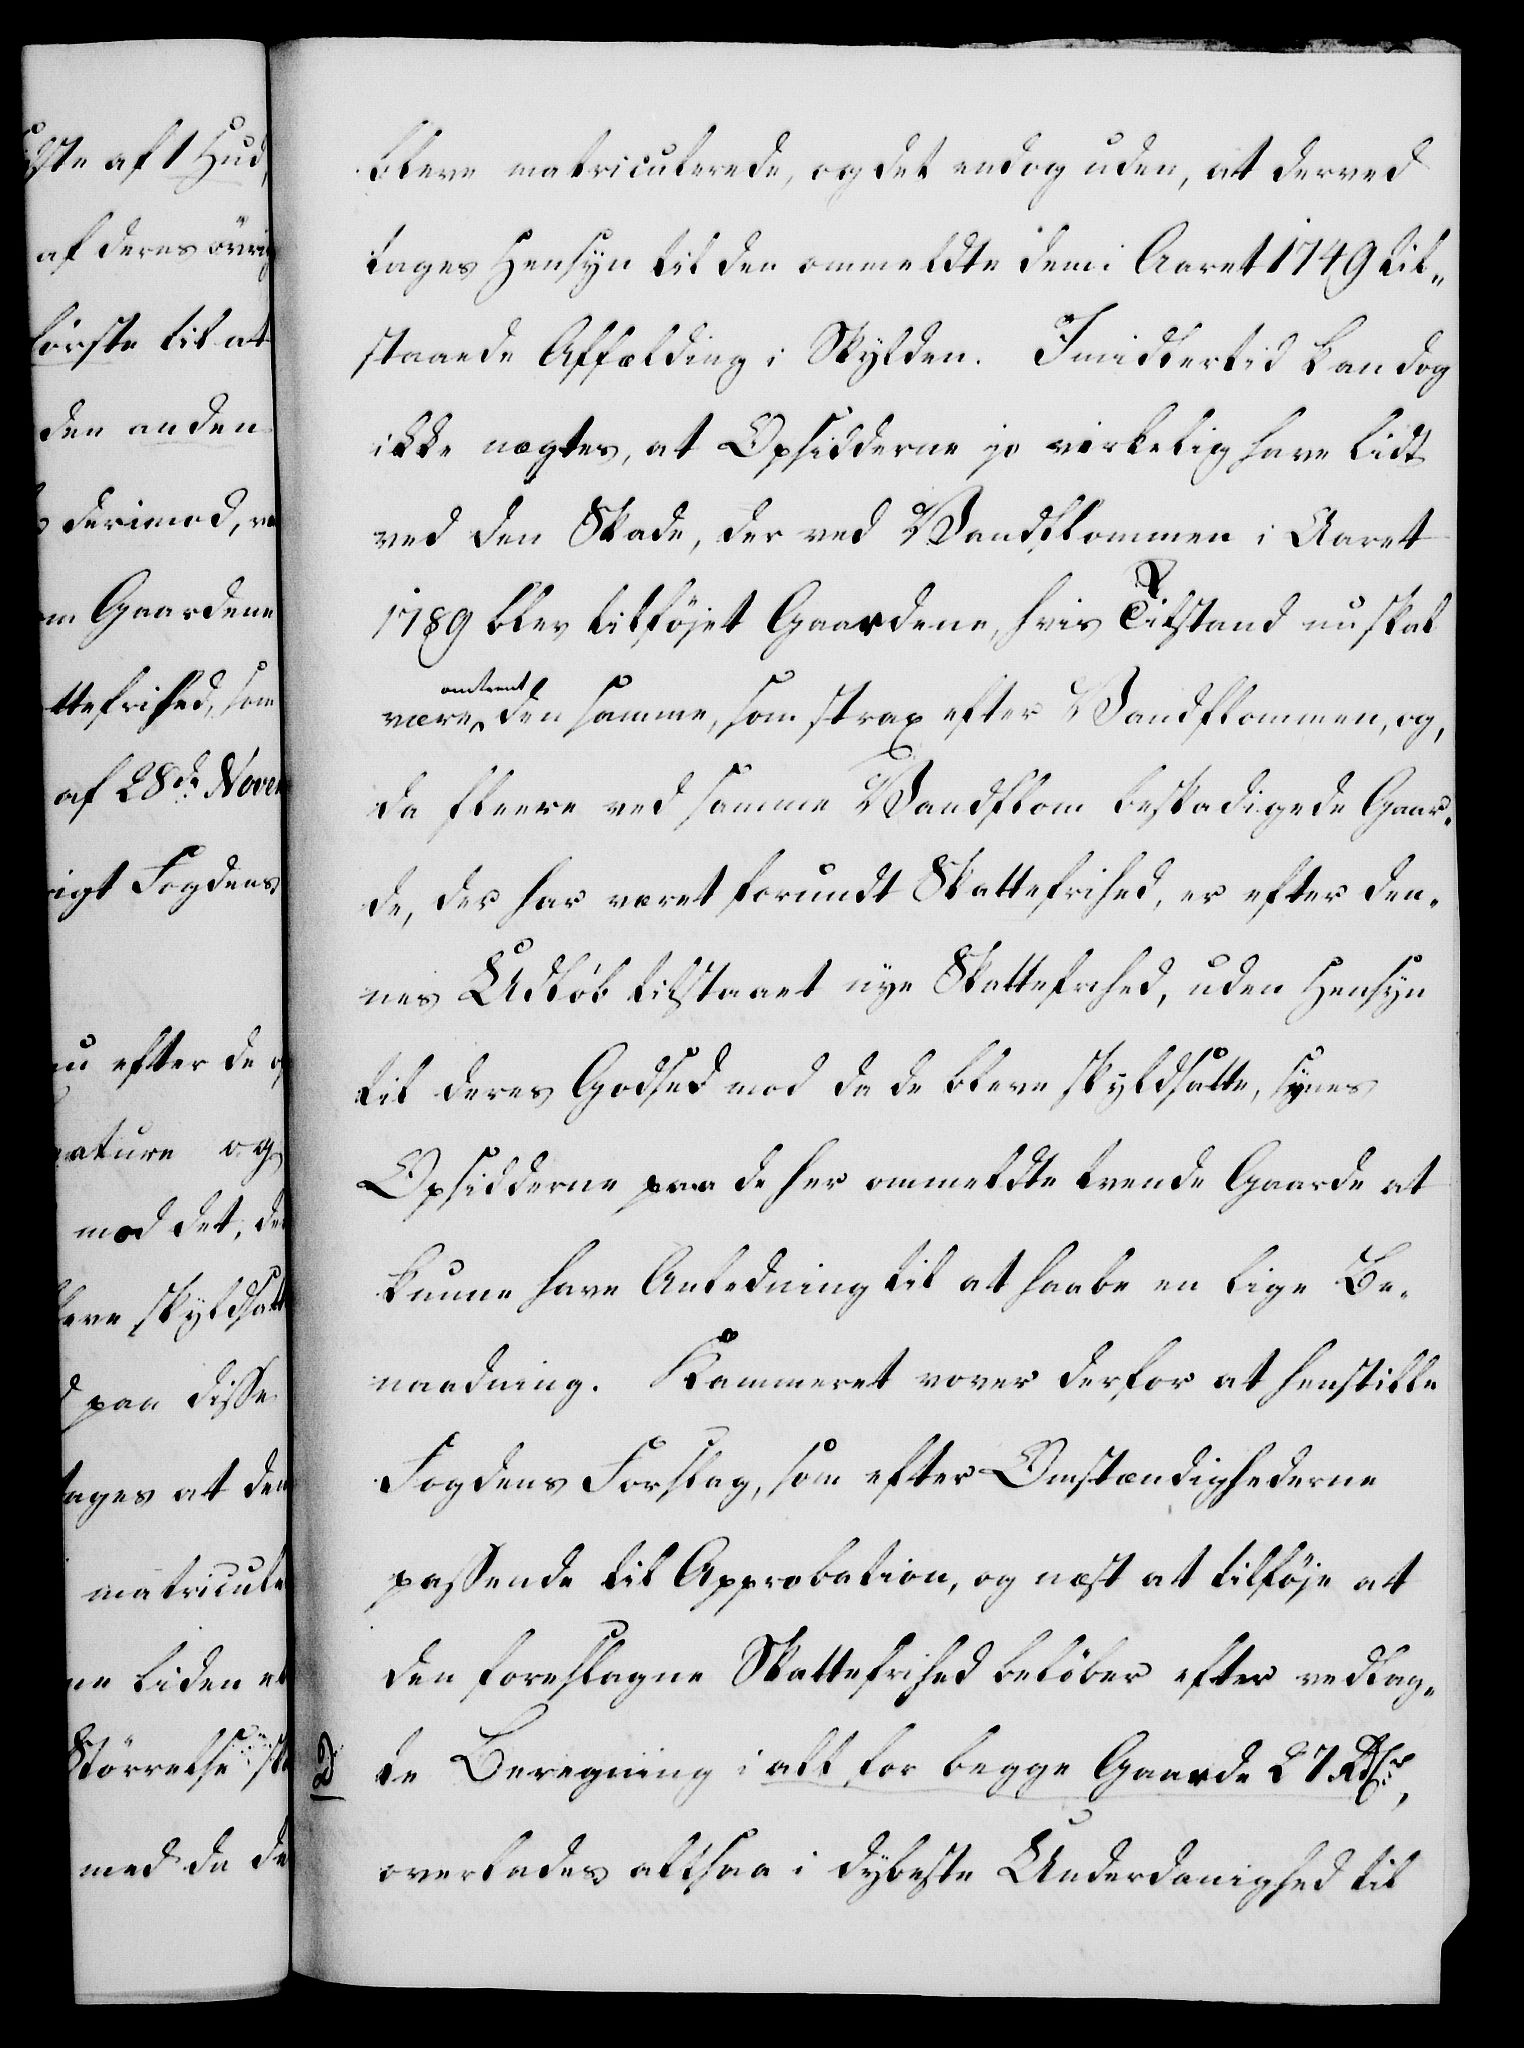 ste af 1 Hud,
af deres øvrig
første til at
den anden
derimod, ve
m Gaardene
ttefrihed, som
af 28de Novem
rigt Fogdens
nu efter de
nature og
mod det, de
leve skyldsatt
paa disse
tages at den
matricule
ne liden
Størrelse
med da de
bleve matriculerede, og det endog uden, at derved
tages Hensyn til den ommeldte dem i Aaret 1749 til-
staaede Affælding i Skylden. Imidlertid kan dog
ikke nægtes, at Opsidderne jo virkelig have lidt
ved den Skade, der ved Vandflommen i Aaret
1789 blev tilföjet Gaardene, hvis Tilstand nu skal
være omtrent den samme, som strax efter Vandflommen, og,
da fleere ved samme Vandflom beskadigede Gaar-
de, der har været forundt Skattefrihed, er efter den-
nes Udløb tilstaaet nye Skattefrihed, uden Hensyn
til deres Godhed mod da de bleve skyldsatte, synes
Opsidderne paa de her ommeldte tvende Gaarde at
kunne have Anledning til at haabe en lige Be-
naadning. Kammeret vover derfor at henstille
Fogdens Forslag, som efter Omstændighederne
passende til Approbation, og næst at tilföje at
den foreslagne Skattefrihed belöber efter vedlag-
2. te Beregning i alt for begge Gaarde 27 Rdlr,
overlades altsaa i dybeste Underdanighed til